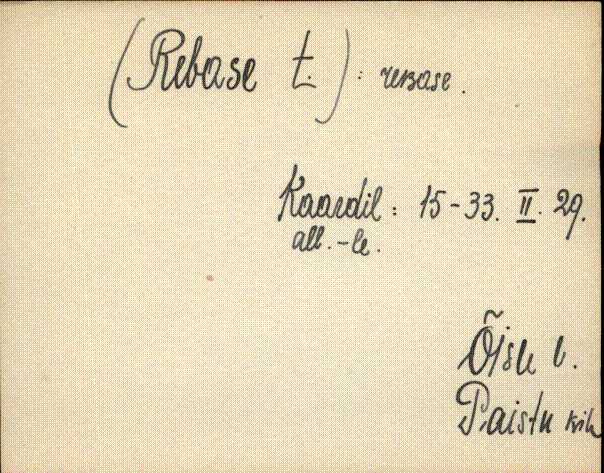 (Rebase t.) : reʙase.
Kaardil : 15-33. II. 29.
all. -le.
Õisu v.
Paistu kih